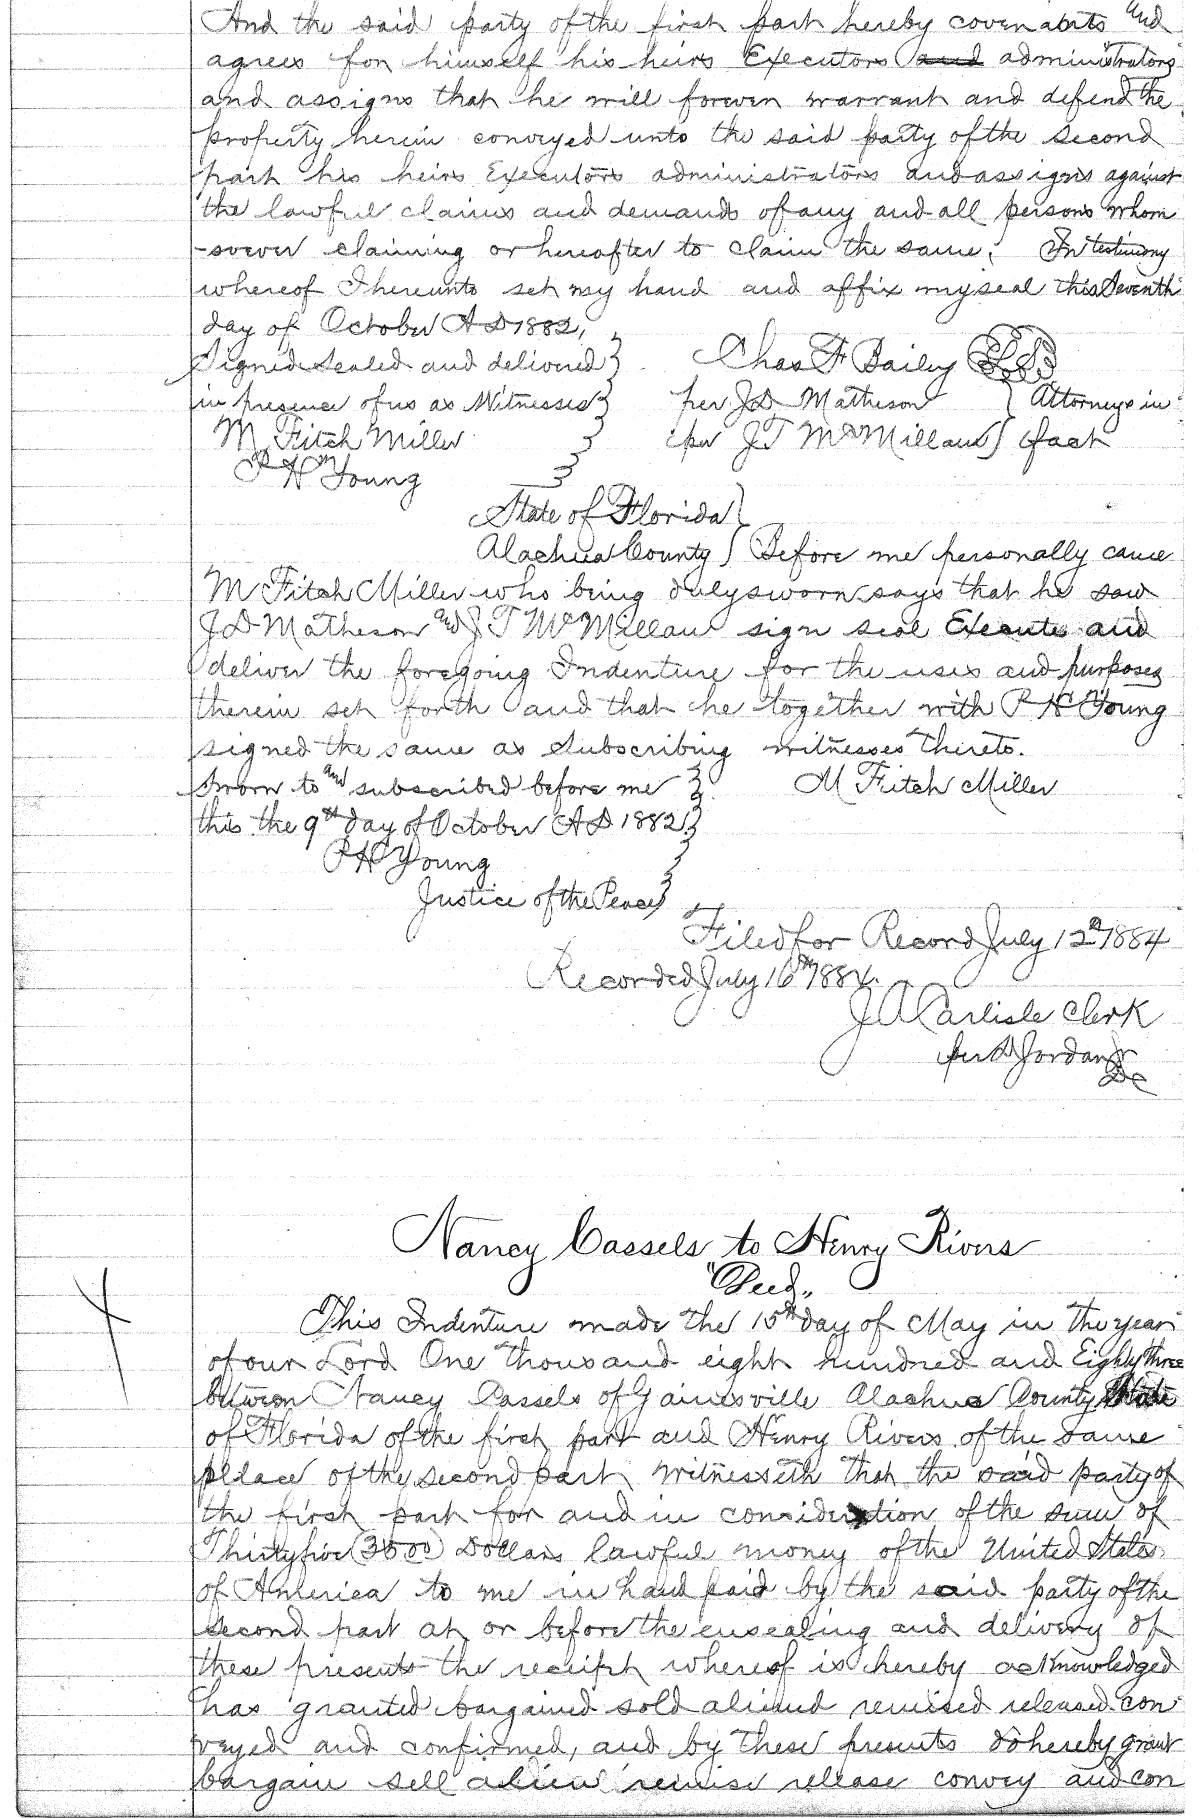 And the said party of the first part hereby covenants and
agrees for himself his heirs Executors and administrators
and assigns that he will forever warrant and defend the
property herein conveyed unto the said party of the second
part his heirs Executors administrators and assigns against
the lawful claims and demands of any and all persons whom
-soever claiming or hereafter to claim the same. In testimony
whereof I hereunto set my hand and affix my seal this Seventh
day of October AD 1882,
Signed Sealed and delivered
in presence of us as Witnesses
M Fitch Miller
P H Young
Chas F Bailey LS
per JD Matheson } Attorneys in
per J T McMillan } fact
State of Florida }
Alachua County } Before me personally came
M Fitch Miller who being duly sworn says that he saw
J D Matheson and J T McMillan sign seal Execute and
deliver the foregoing Indenture for the uses and purposes
therein set forth and that he together with P H Young
signed the same as Subscribing witnesses thereto.
Sworn to and subscribed before me
this the 9th day of October AD 1882
P H Young
Justice of the Peace
M Fitch Miller
Filed for Record July 12th 1884
Recorded July 16th 1884.
J A Carlisle Clerk
per D Jordan Jr
DC
Nancy Cassels to Henry Rivers
"Deed"
This Indenture made the 15th day of May in the year
of our Lord One thousand eight hundred and Eighty three
between Nancy Cassels of Gainesville Alachua County State
of Florida of the first part and Henry Rivers of the same
place of the second part Witnesseth that the said party of
the first part for and in consideration of the sum of
Thirty five (3500) Dollars lawful money of the United States
of America to me in hand paid by the said party of the
second part at or before the ensealing and delivery of
these presents the receipt whereof is hereby acknowledged
has granted bargained sold aliened remised released con
veyed and confirmed, and by these presents do hereby grant
bargain sell alien remise release convey and con